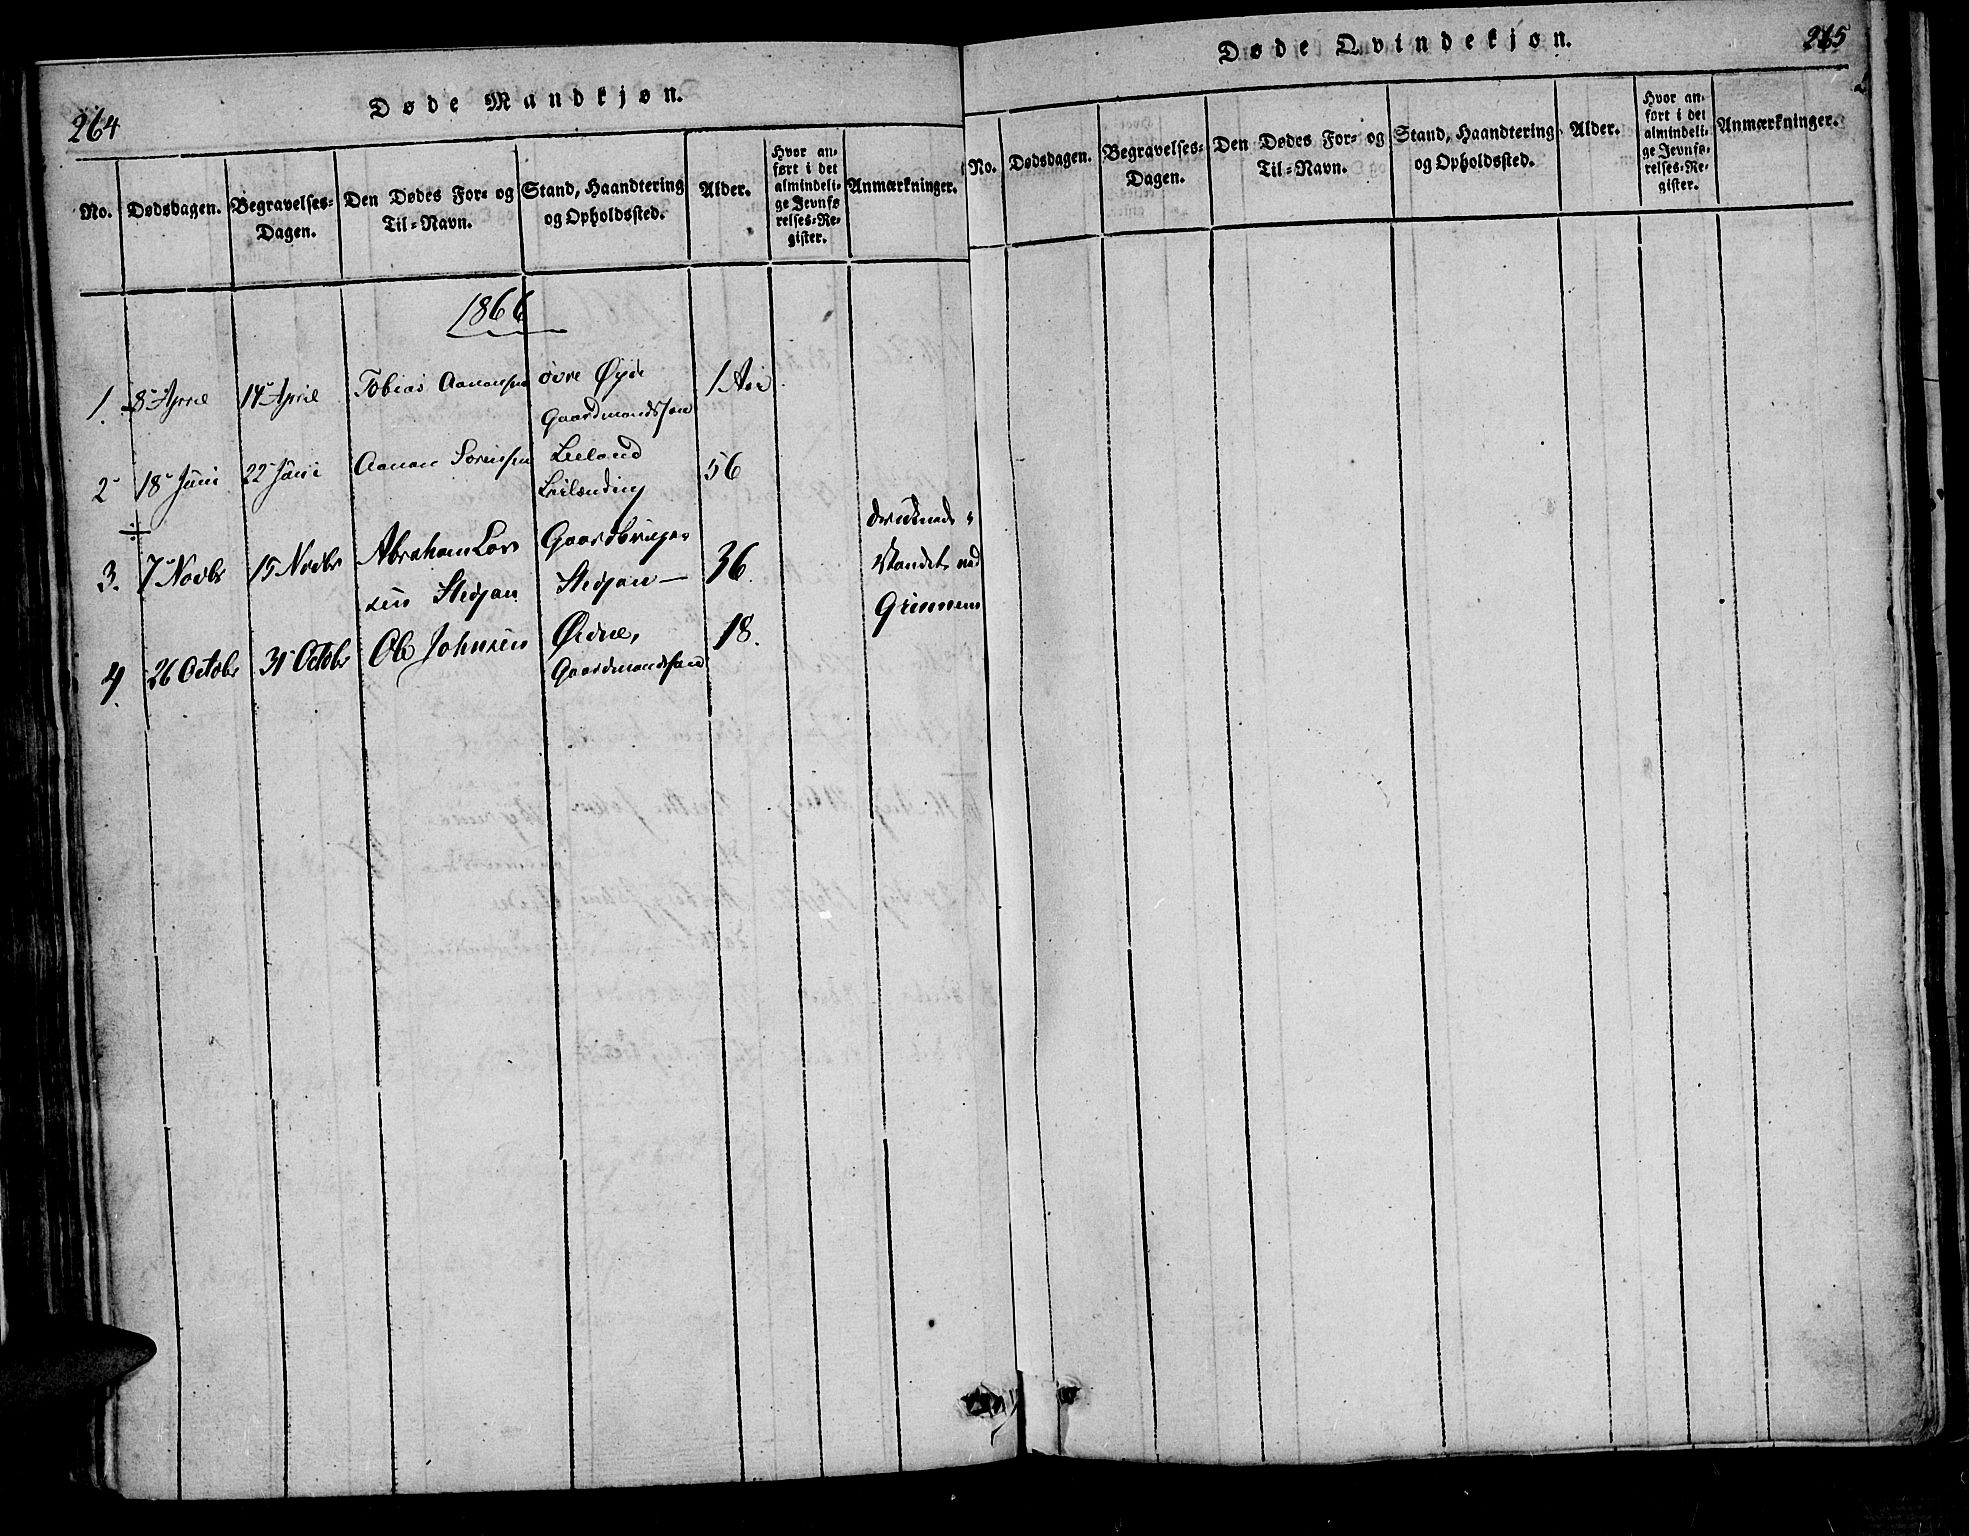 264
Døde Mandkjøn.
No. Dødsdagen. Begravelses-Dagen. Den Dødes For- og Til-Navn. Stand, Haandtering og Opholdssted. Alder. Hvor anført i det almindelige Jevnførelses-Register. Anmærkninger.
1866
1. 8 April 14 April Tobias Aanonsen øvre Øyde 1 Aar
Gaardmandssøn
2 18 Juni 22 Juni Aanon Sørensen Leeland 56
Leilænding
3. 7 Novbr 15 Novbr Abraham Lar Gaardbruger 36.
sen Stedjan Stedjan
druknede
Vandet ved
4. 26 Octobr 31 Octobr Ole Johnsen 18.
Gaardmandssøn
265
Døde Qvindekjøn.
No. Dødsdagen. Begravelses-Dagen. Den Dødes For- og Til-Navn. Stand, Haandtering og Opholdssted. Alder. Hvor anført i det almindelige Jevnførelses-Register. Anmærkninger.